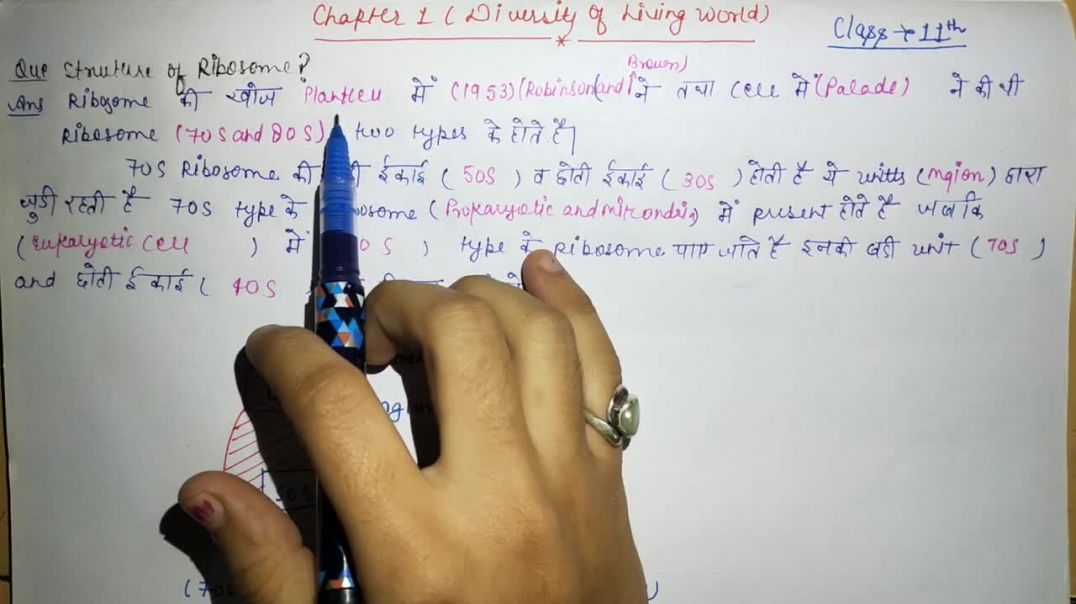 Chapter 1 (Diversity of Living World)
Class → 11th
Que Struture of Ribosome?
Brown)
Ans Ribosome की खोज Plantcell में (1953) (Robinson and ने तथा Cell में (Palade) ने की थी
Ribosome (70S and 80S) two types के होते है।
70S Ribosome की ईकाई (50S) व छोती ईकाई (30S) होती है ये units (mgion) द्वारा
जुडी रहती है 70S type के (Prokaryotic and mitcondain) में present होते है जबकि
(Eukaryotic Cell) में 0 S) type के Ribosome पाए जाते है इनकी बडी unit (70S)
and छोती ईकाई (40S
50S
(70S